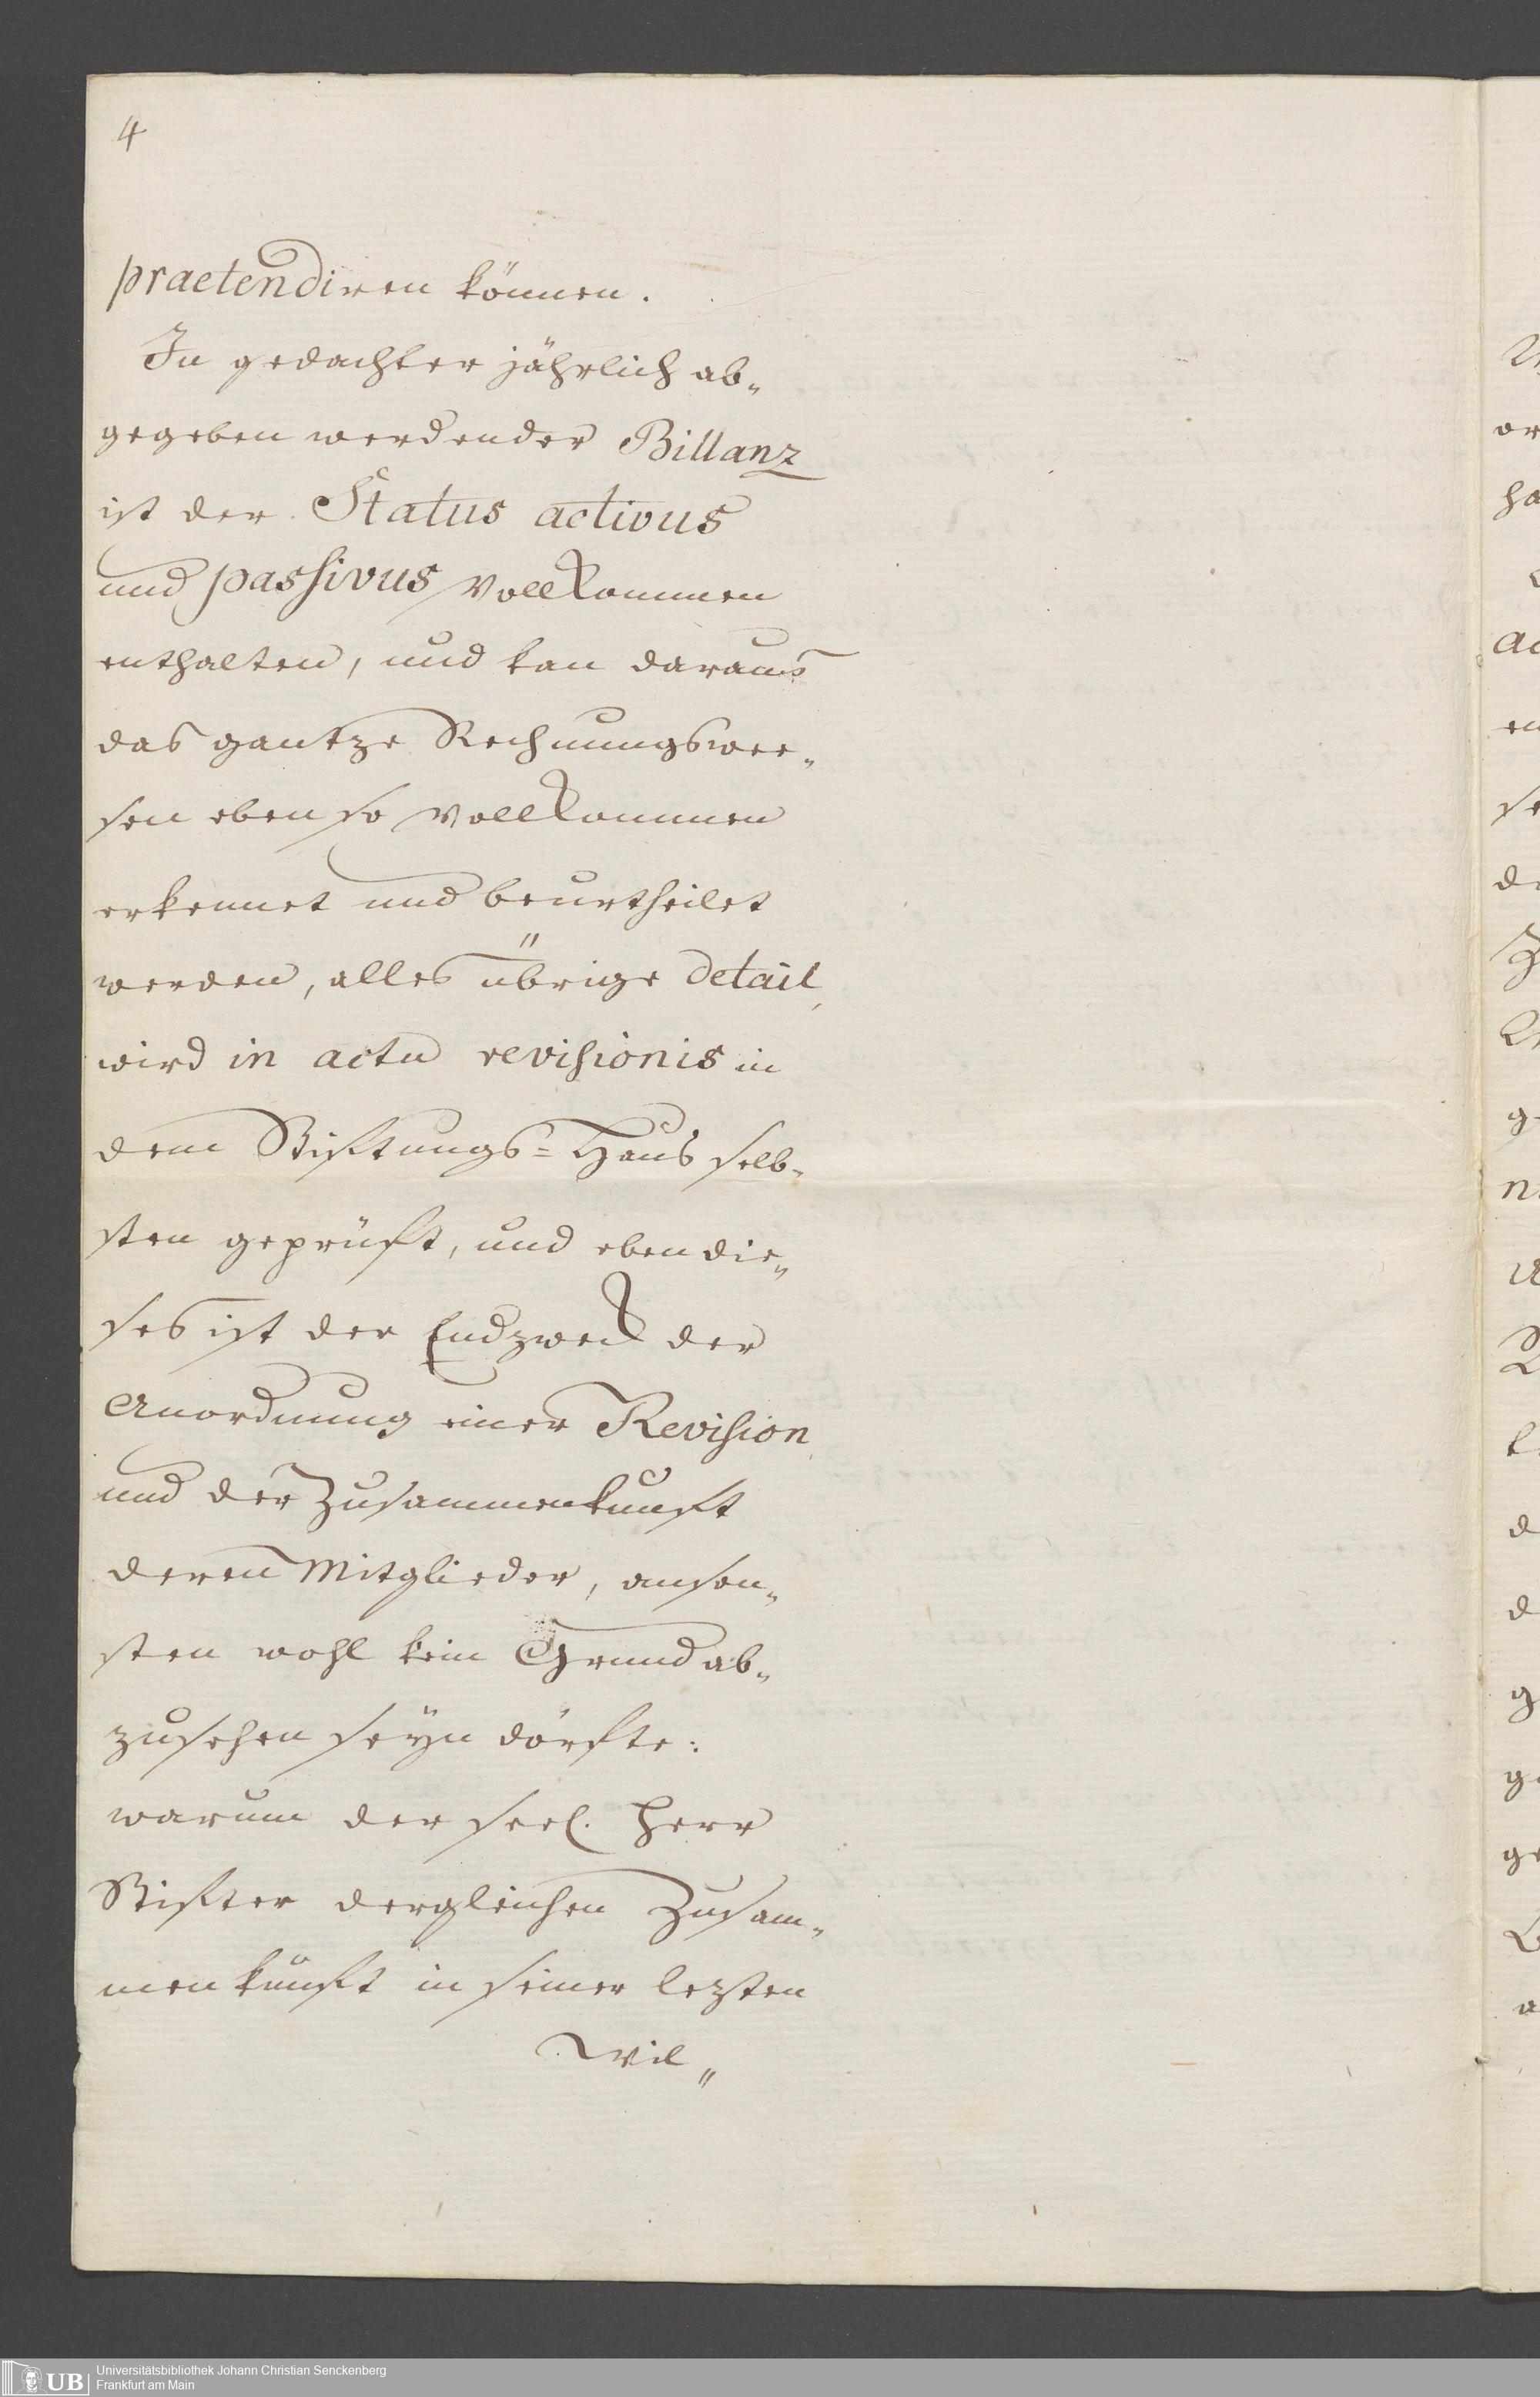 4
praetendiren können.
In gedachter jährlich ab„
gegeben werdender Billanz
ist der Status activus
und passivus vollkommen
enthalten, und kan daraus
das gantze Rechnungswee„
sen eben so vollkommen
erkennet und beurtheilet
werden, alles übrige detail
wird in actu revisionis in
dem Stiftungs=Haus selb„
sten geprüft, und eben die„
ses ist der Endzweck der
Anordnung einer Revision
und der Zusammenkunft
deren Mitglieder, anson„
sten wohl kein Grund ab„
zusehen seyn dörfte:
warum der seel. Herr
Stifter dergleichen Zusam„
menkunft in seiner lezten
Wil„
UB
Universitätsbibliothek Johann Christian Senckenberg
Frankfurt am Main